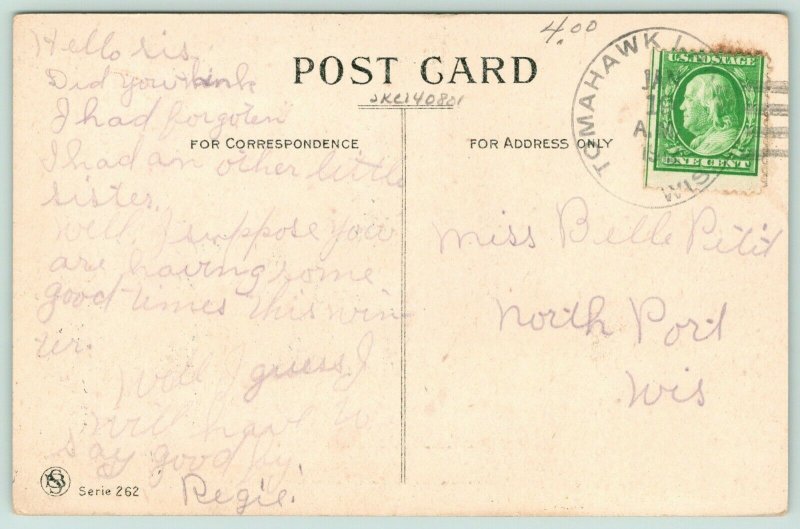 4.00
POST CARD
JKC140801
FOR CORRESPONDENCE
FOR ADDRESS ONLY
Hello sis.
Did you think
I had forgoten
I had an other little
sister.
Well I suppose you
are having some
good times this win-
ter.
Well I guess I
will have to
say good by
Regie.
TOMAHAWK
WIS
A.M.
U.S. POSTAGE
ONE CENT
Miss Belle Petit
North Port
Wis
Serie 262